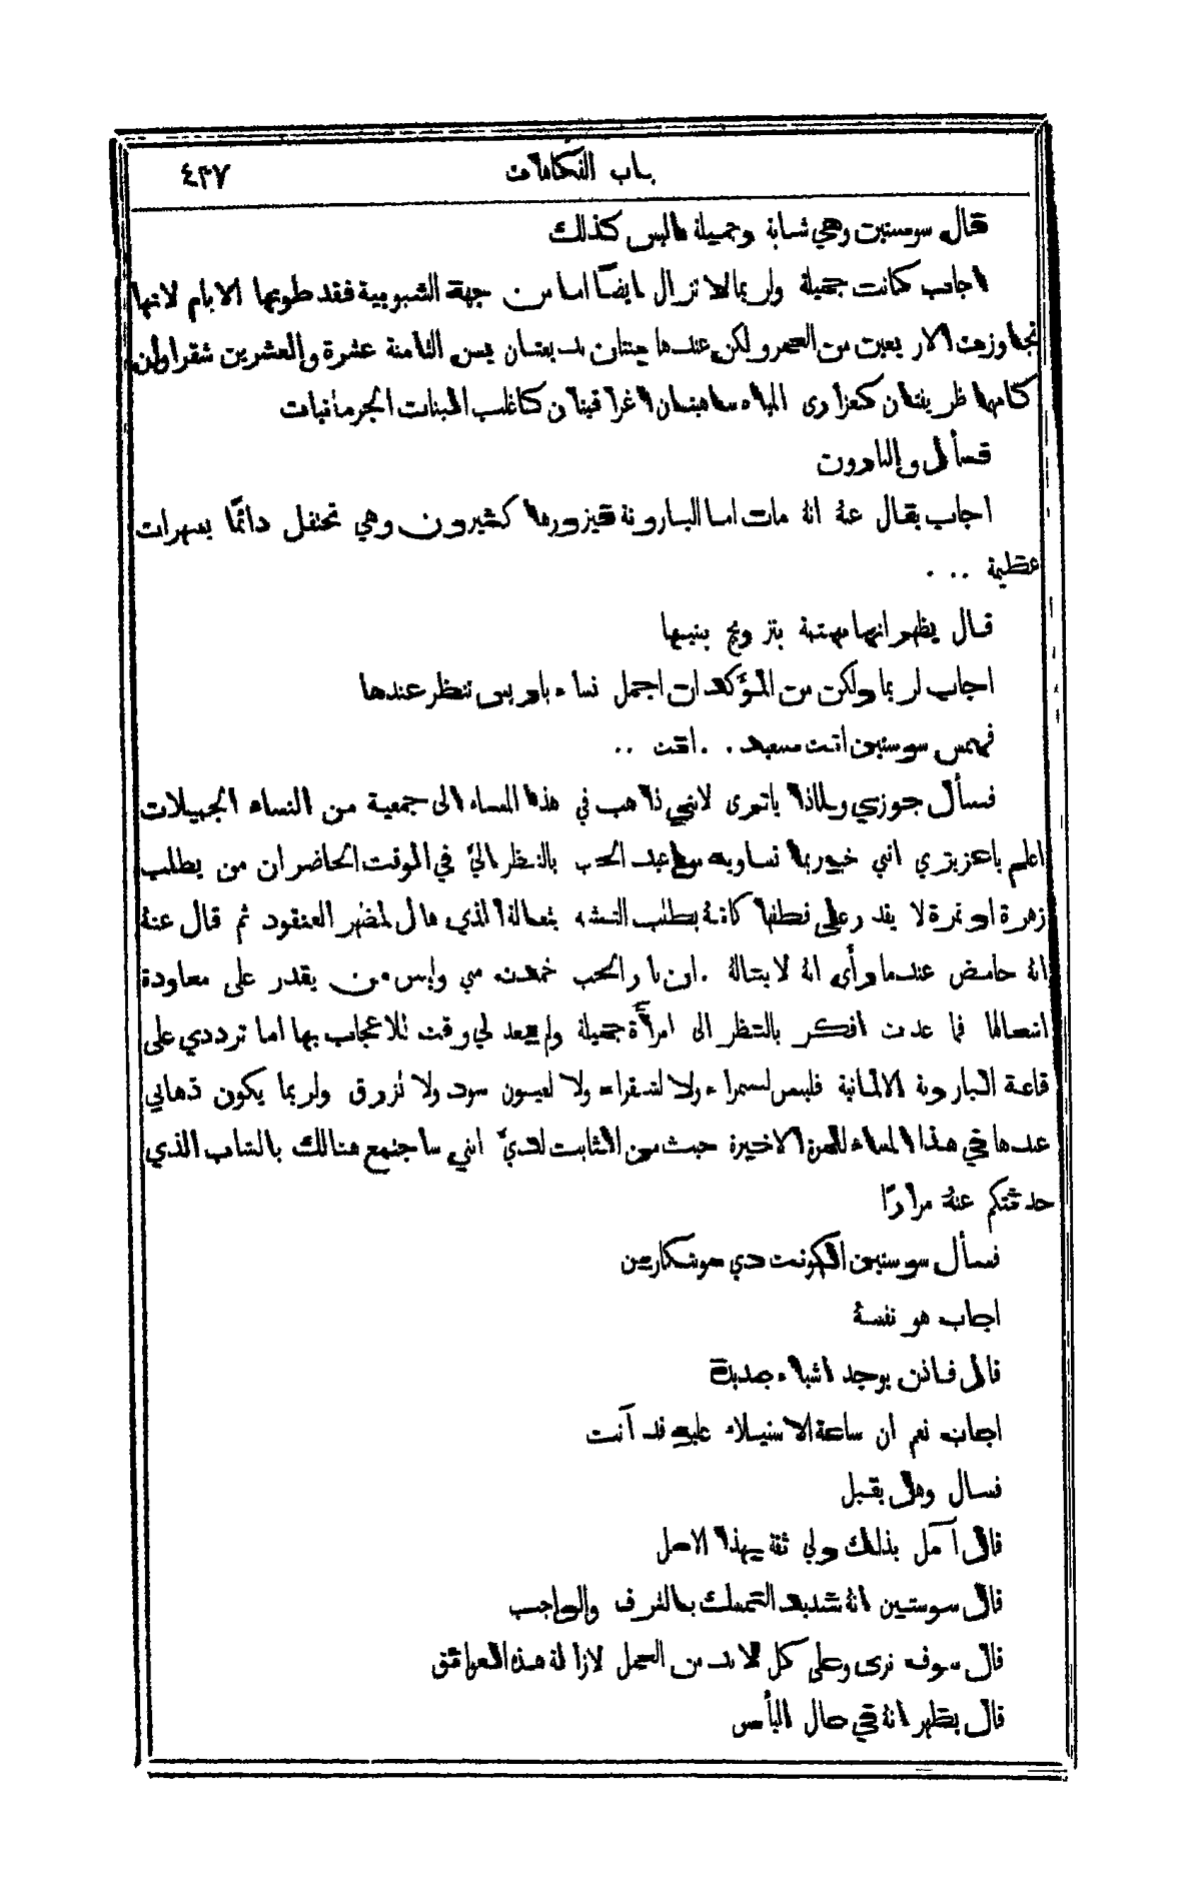 باب الفكاهات ٤٣٧
قال سوستين وهي شابة وجميلة اليس كذلك
اجاب كانت جميلة ولربما لا تزال ايضًا اما من جهة الشبوبية فقد طوتها الايام لانها
تجاوزت الاربعين من العمر ولكن عندها بنتان بديعتان بسن الثامنة عشرة والعشرين شقراوان
كامها ظريفتان كعذارى المياه ساهيتان كاغلب البنات الجرمانيات
فسأل والبارون
اجاب يقال عنهُ انهُ مات اما البارونة فيزورها كثيرون وهي تحتفل دائمًا بسهرات
عظيمة ...
قال يظهر انها مهتمة بتزويج بنتيها
اجاب لربما ولكن من المؤكد ان اجمل نساء باريس تنظر عندها
فهمس سوستين انت سعيد .. انت ..
فسأل جوزي ولماذا ياترى لانني ذاهب في هذا المساء الى جمعية من النساء الجميلات
اعلم ياعزيزي انني خبير بما تساويه مواعيد الحب بالنظر اليّ في الوقت الحاضر ان من يطلب
زهرة او ثمرة لا يقدر على قطفها كانهُ يطلب التشبه بثعالة الذي مال لمنظر العنقود ثم قال عنهُ
انهُ حامض عندما رأى انهُ لا ينالهُ . ان نار الحب خمدت مني وليس من يقدر على معاودة
اشعالها فما عدت افكر بالنظر الى امرأة جميلة ولم يعد لي وقت للاعجاب بها اما ترددي على
قاعة البارونة الالمانية فليس لسمراء ولا لشقراء ولا لعيون سود ولا لزرق ولربما يكون ذهابي
عندها في هذا المساء للمرة الاخيرة حيث من الثابت لديّ انني ساجتمع هنالك بالشاب الذي
حدثتكم عنهُ مرارًا
فسأل سوستين الكونت دي
اجاب هو نفسهُ
قال فاذن يوجد اشياء جديدة
اجاب نعم ان ساعة الاستيلاء عليه قد آنت
فسال وهل يقبل
قال آمل بذلك ولي ثقة بهذا الامل
قال سوستين انهُ شديد التمسك بالشرف والواجب
قال سوف نرى وعلى كل لا بد من العمل لازالة هذه العوائق
قال يظهر انهُ في حال اليأس